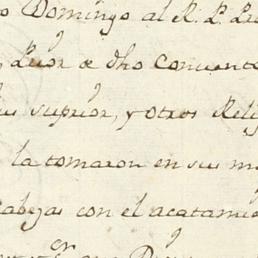 o Domingo al R. P.
Prior de dho Convento
su suprior, y otros Reli
la tomaron en sus m
cabezas con el acatami